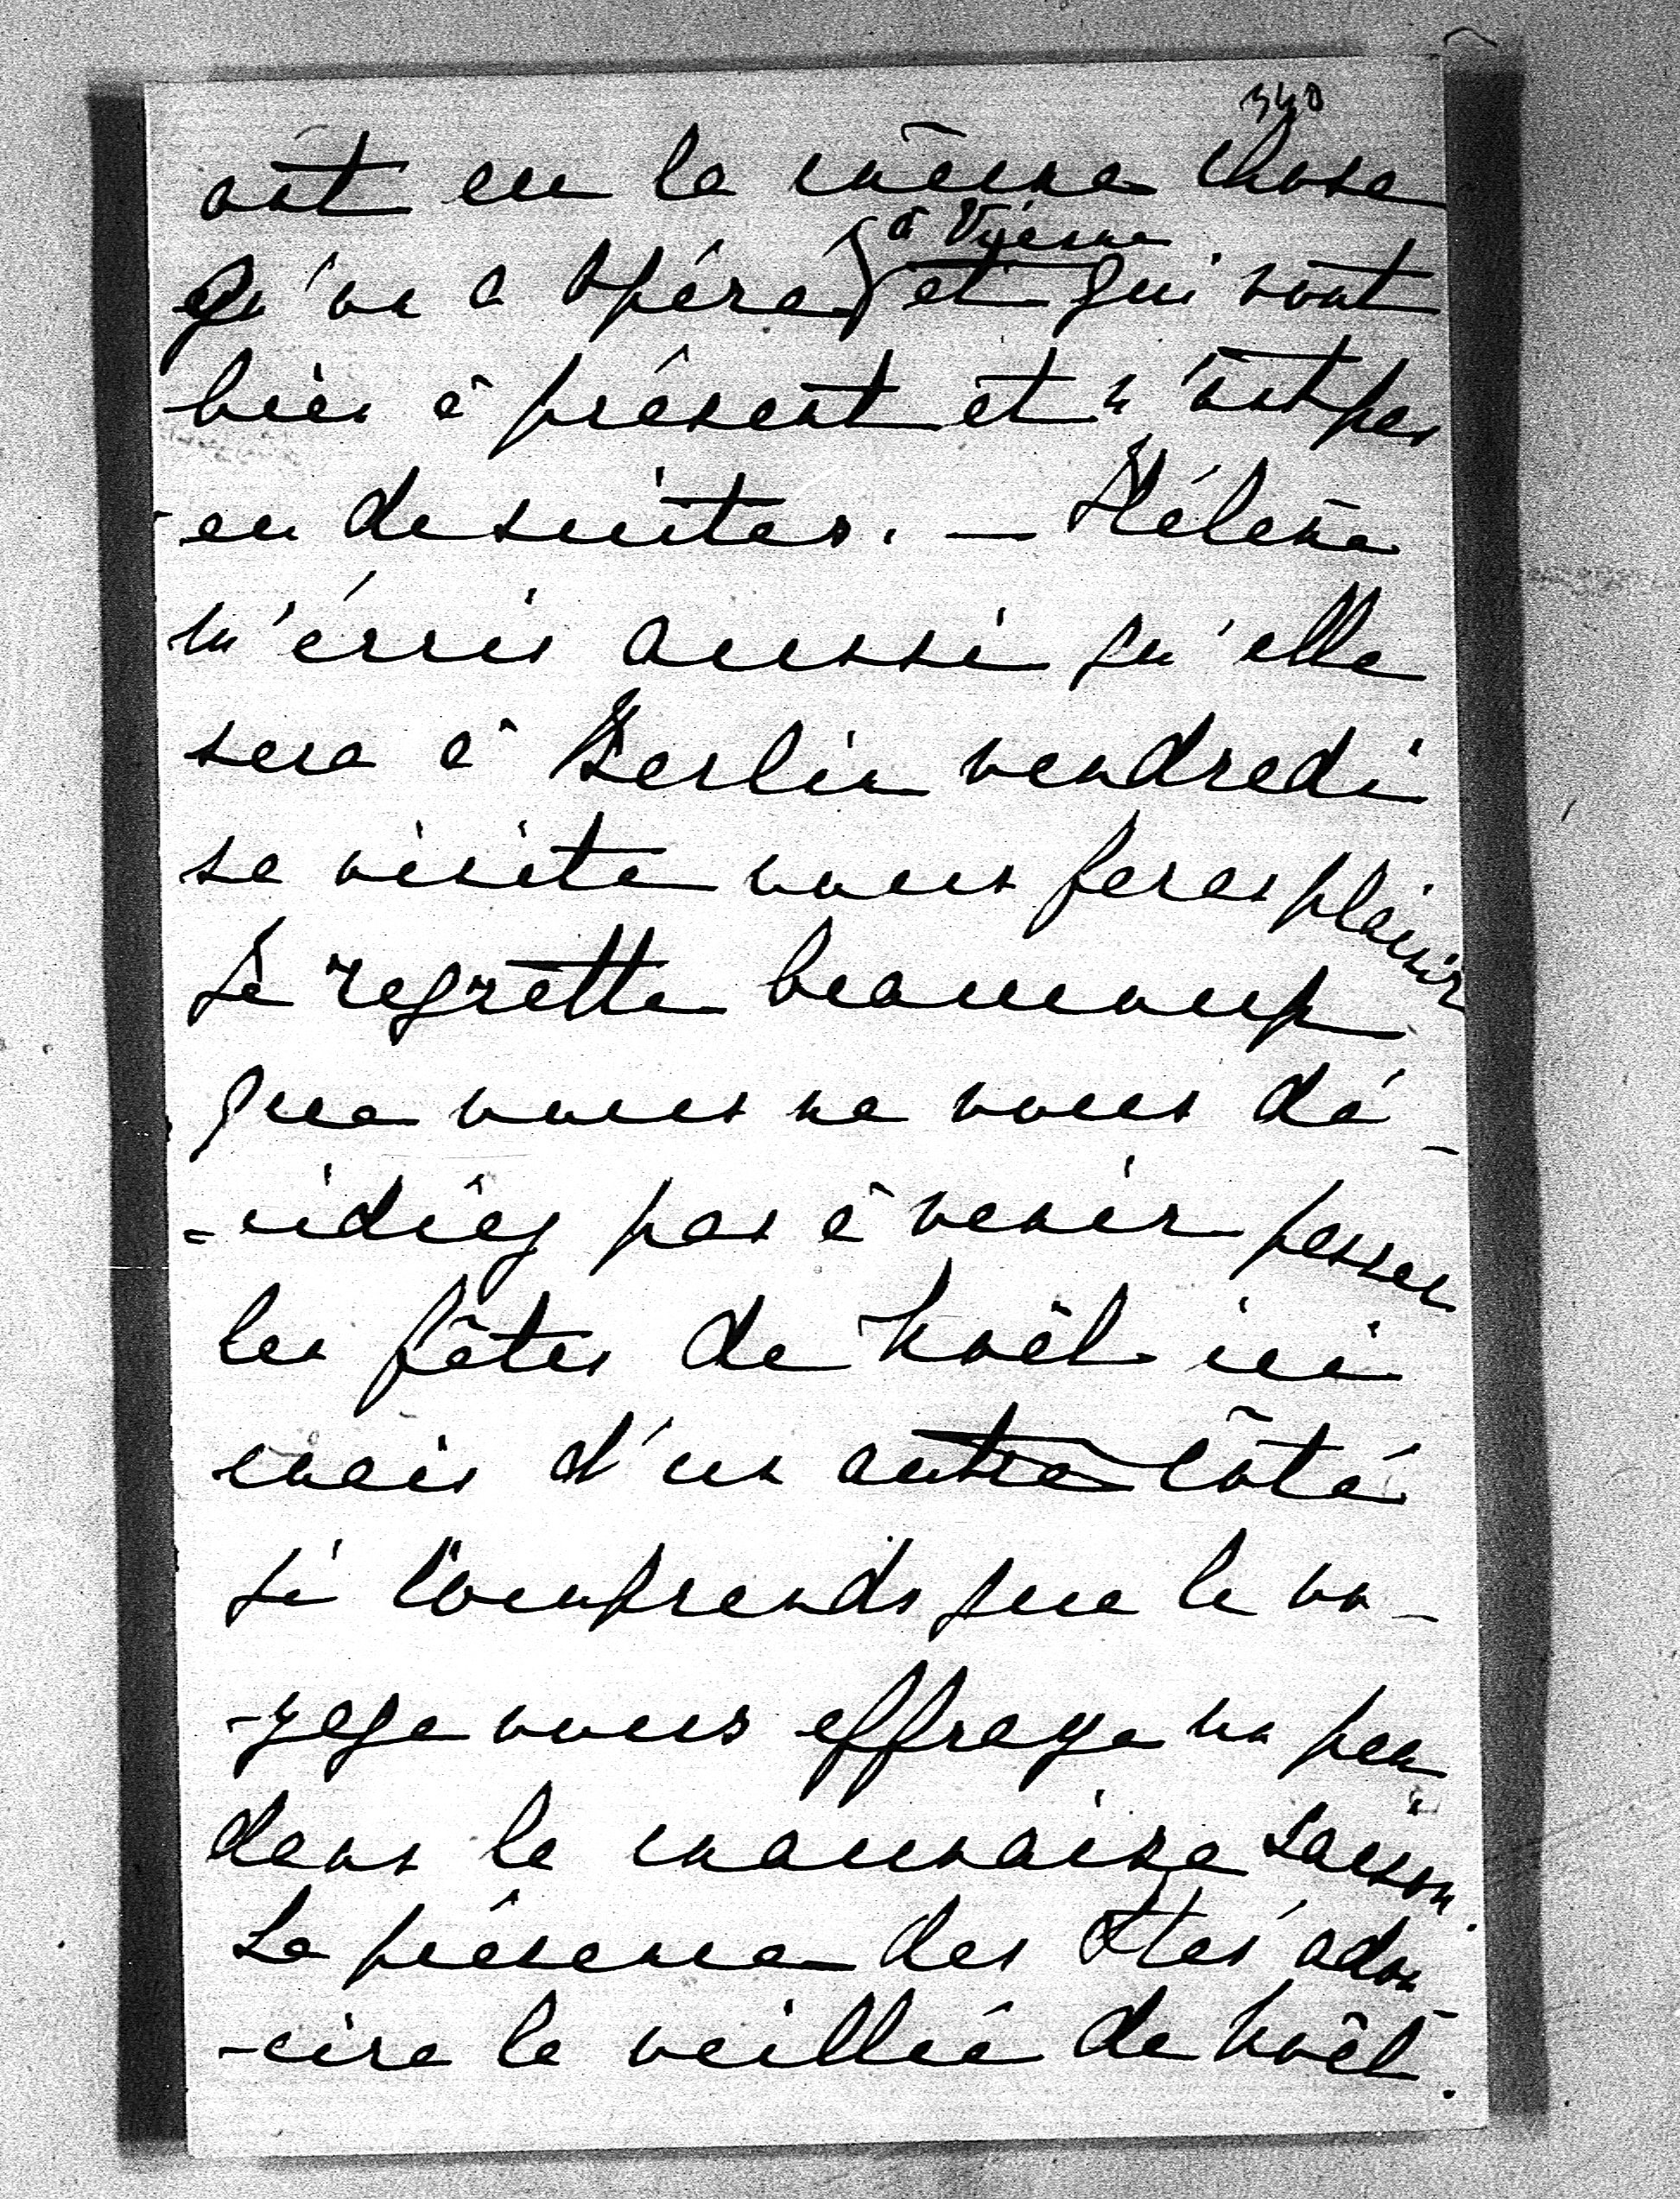 340
ont eu la même chose
à Vienne
qu'on a opéré et qui vont
bien à présent et n'ont pas
eu de suites. — Hélène
m'écris aussi qu'elle
sera à Berlin vendredi
sa visite vous feras plaisir
Je regrette beaucoup
que vous ne vous dé-
-cidiez pas à venir passer
les fêtes de Noël ici
mais d'un autre côté
je comprends que le vo-
-yage vous effraye un peu
dans la mauvaise saison.
La présence des adou
-cira la veillée de Noël.